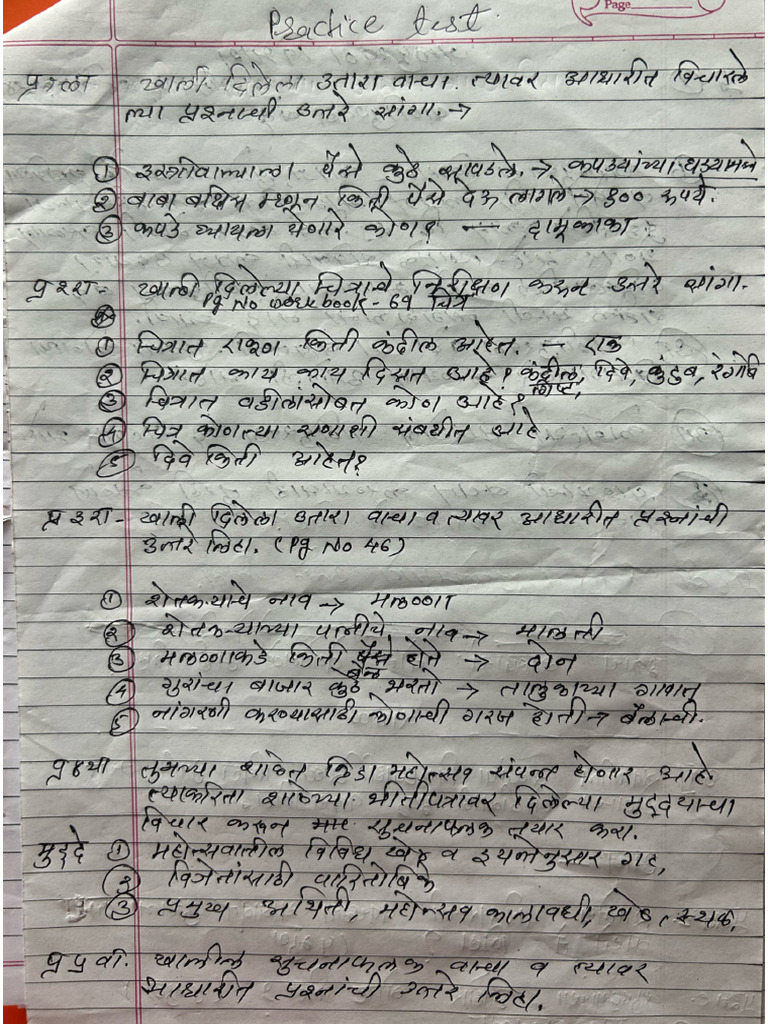 Page
Practice test.
प्र१ला खाली दिलेला उतारा वाचा. त्यावर आधारीत विचारले
ल्या प्रश्नाची उत्तरे सांगा. →
① इस्त्रीवाल्याला पैसे कुठे सापडले. → कपडयांच्या घडयामधे
② बाबा बक्षिस म्हणून किती पैसे देऊ लागले → १०० रूपये.
③ कपडे घ्यायला येणारे कोण? — दामूकाका
प्र२रा - खाली दिलेल्या चित्राचे निरीक्षण करून उत्तरे सांगा.
Pg No workbook - 69 चित्र
① चित्रात एकूण किती कंदील आहेत. — एक
② चित्रात काय काय दिसत आहे? कंदील, दिवे, कुंटुब, रंगोळी
③ चित्रात वडीलांसोबत कोण आहे?
④ चित्र कोणत्या सणाशी संबधीत आहे
⑤ दिवे किती आहेत?
प्र३रा - खाली दिलेला उतारा वाचा व त्यावर आधारीत प्रश्नांची
उत्तरे लिहा. (Pg No 46)
① शेतकऱ्याचे नाव → मळण्णा
② शेतकऱ्याच्या पत्नीचे नाव → मालती
③ मळण्णाकडे किती बैल होते → दोन
④ गुरांचा बाजार कुठे भरतो → तालुकाच्या गावात
⑤ नांगरणी करण्यासाठी कोणाची गरज होती → बैलाची.
प्र४था तुमच्या शाळेत क्रिडा महोत्सव संपन्न होणार आहे.
त्याकरिता शाळेच्या भीतीपत्रावर दिलेल्या मुद्दयाचा
विचार करून सुचनाफलक तयार करा.
मुद्दे ① महोत्सवातील विविध खेळ व इयत्तेनुसार गट,
② विजेतांसाठी पारितोषिके
③ प्रमुख अथिती, महोत्सव कालावधी, वेळ, स्थळ.
प्र५वा. खालील सुचनाफलक वाचा व त्यावर
आधारीत प्रश्नांची उत्तरे लिहा.